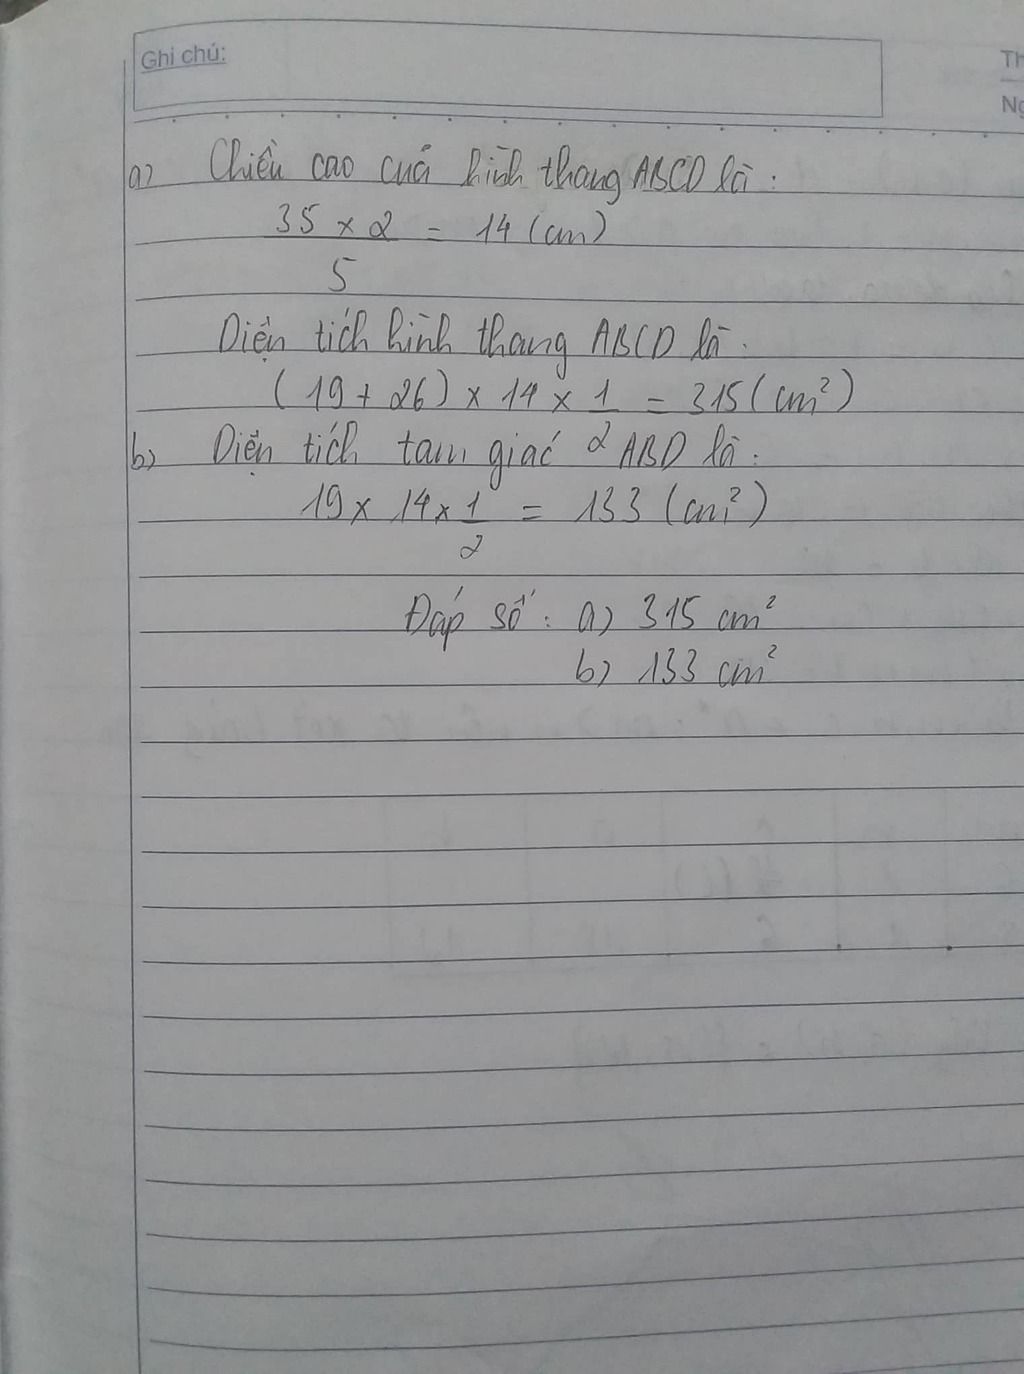 Ghi chú:
Th
Ng
a) Chiều cao của hình thang ABCD là:
35 × 2 = 14 (cm)
5
Diện tích hình thang ABCD là:
(19 + 26) × 14 × 1 = 315 (cm²)
2
b) Diện tích tam giác ABD là:
19 × 14 × 1 = 133 (cm²)
2
Đáp số: a) 315 cm²
b) 133 cm²